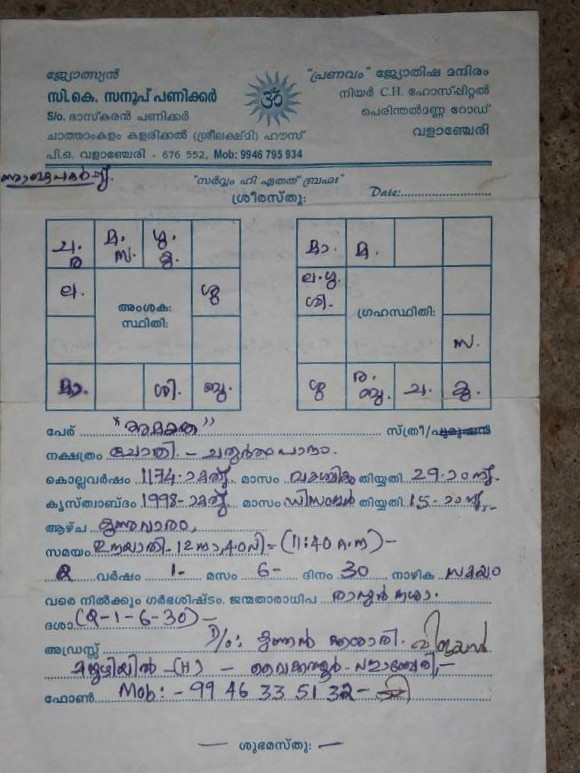 ജ്യോത്സ്യൻ
സി.കെ. സനൂപ് പണിക്കർ
S/o. ഭാസ്കരൻ പണിക്കർ
ചാത്താംകളം കളരിക്കൽ (ശ്രീലക്ഷ്മി) ഹൗസ്
പി.ഒ. വളാഞ്ചേരി - 676 552, Mob: 9946 795 934
ॐ
"പ്രണവം" ജ്യോതിഷ മന്ദിരം
നിയർ C.H. ഹോസ്പിറ്റൽ
പെരിന്തൽമണ്ണ റോഡ്
വളാഞ്ചേരി
"സർവ്വം ഹി ഏതത് ബ്രഹ്മഃ"
ശ്രീരസ്തു:
Date:
ച. ര
മ. സ.
ഗു. കു.
ല.
ശു
അംശക:
സ്ഥിതി:
മാ.
ശി.
ബു.
മാ.
മ.
ല.ഗു.
ശി.
ഗ്രഹസ്ഥിതി:
സ.
ശു
ര. ബു.
ച.
കു.
പേര്
സ്ത്രീ/പുരുഷൻ
നക്ഷത്രം ചോതി - ചതുർത്ഥപാദം.
കൊല്ലവർഷം 1174-ാമത് മാസം വൃശ്ചികം തിയ്യതി 29-ാംനു
കൃസ്ത്വാബ്ദം 1998-ാമത് മാസം ഡിസംബർ തിയ്യതി 15-ാംനു
ആഴ്ച
സമയം (11:40 A.M) -
വർഷം 1- മാസം 6- ദിനം 30 നാഴിക സമയം
വരെ നിൽക്കും ഗർഭശിഷ്ടം. ജന്മതാരാധിപ രാഹുർദശാ.
ദശാ
അഡ്രസ്സ് D/o:
(H) -
ഫോൺ Mob: - 99 46 33 51 32 -
— ശുഭമസ്തു: —